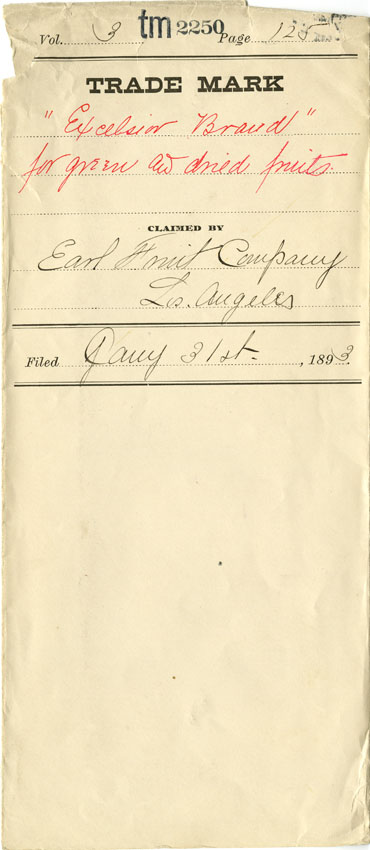 Vol. 3 tm 2250 Page 125
TRADE MARK
"Excelsior Brand"
for green and dried fruits.
CLAIMED BY
Earl Fruit Company
Los. Angeles
Filed Jany 31st. , 1893.